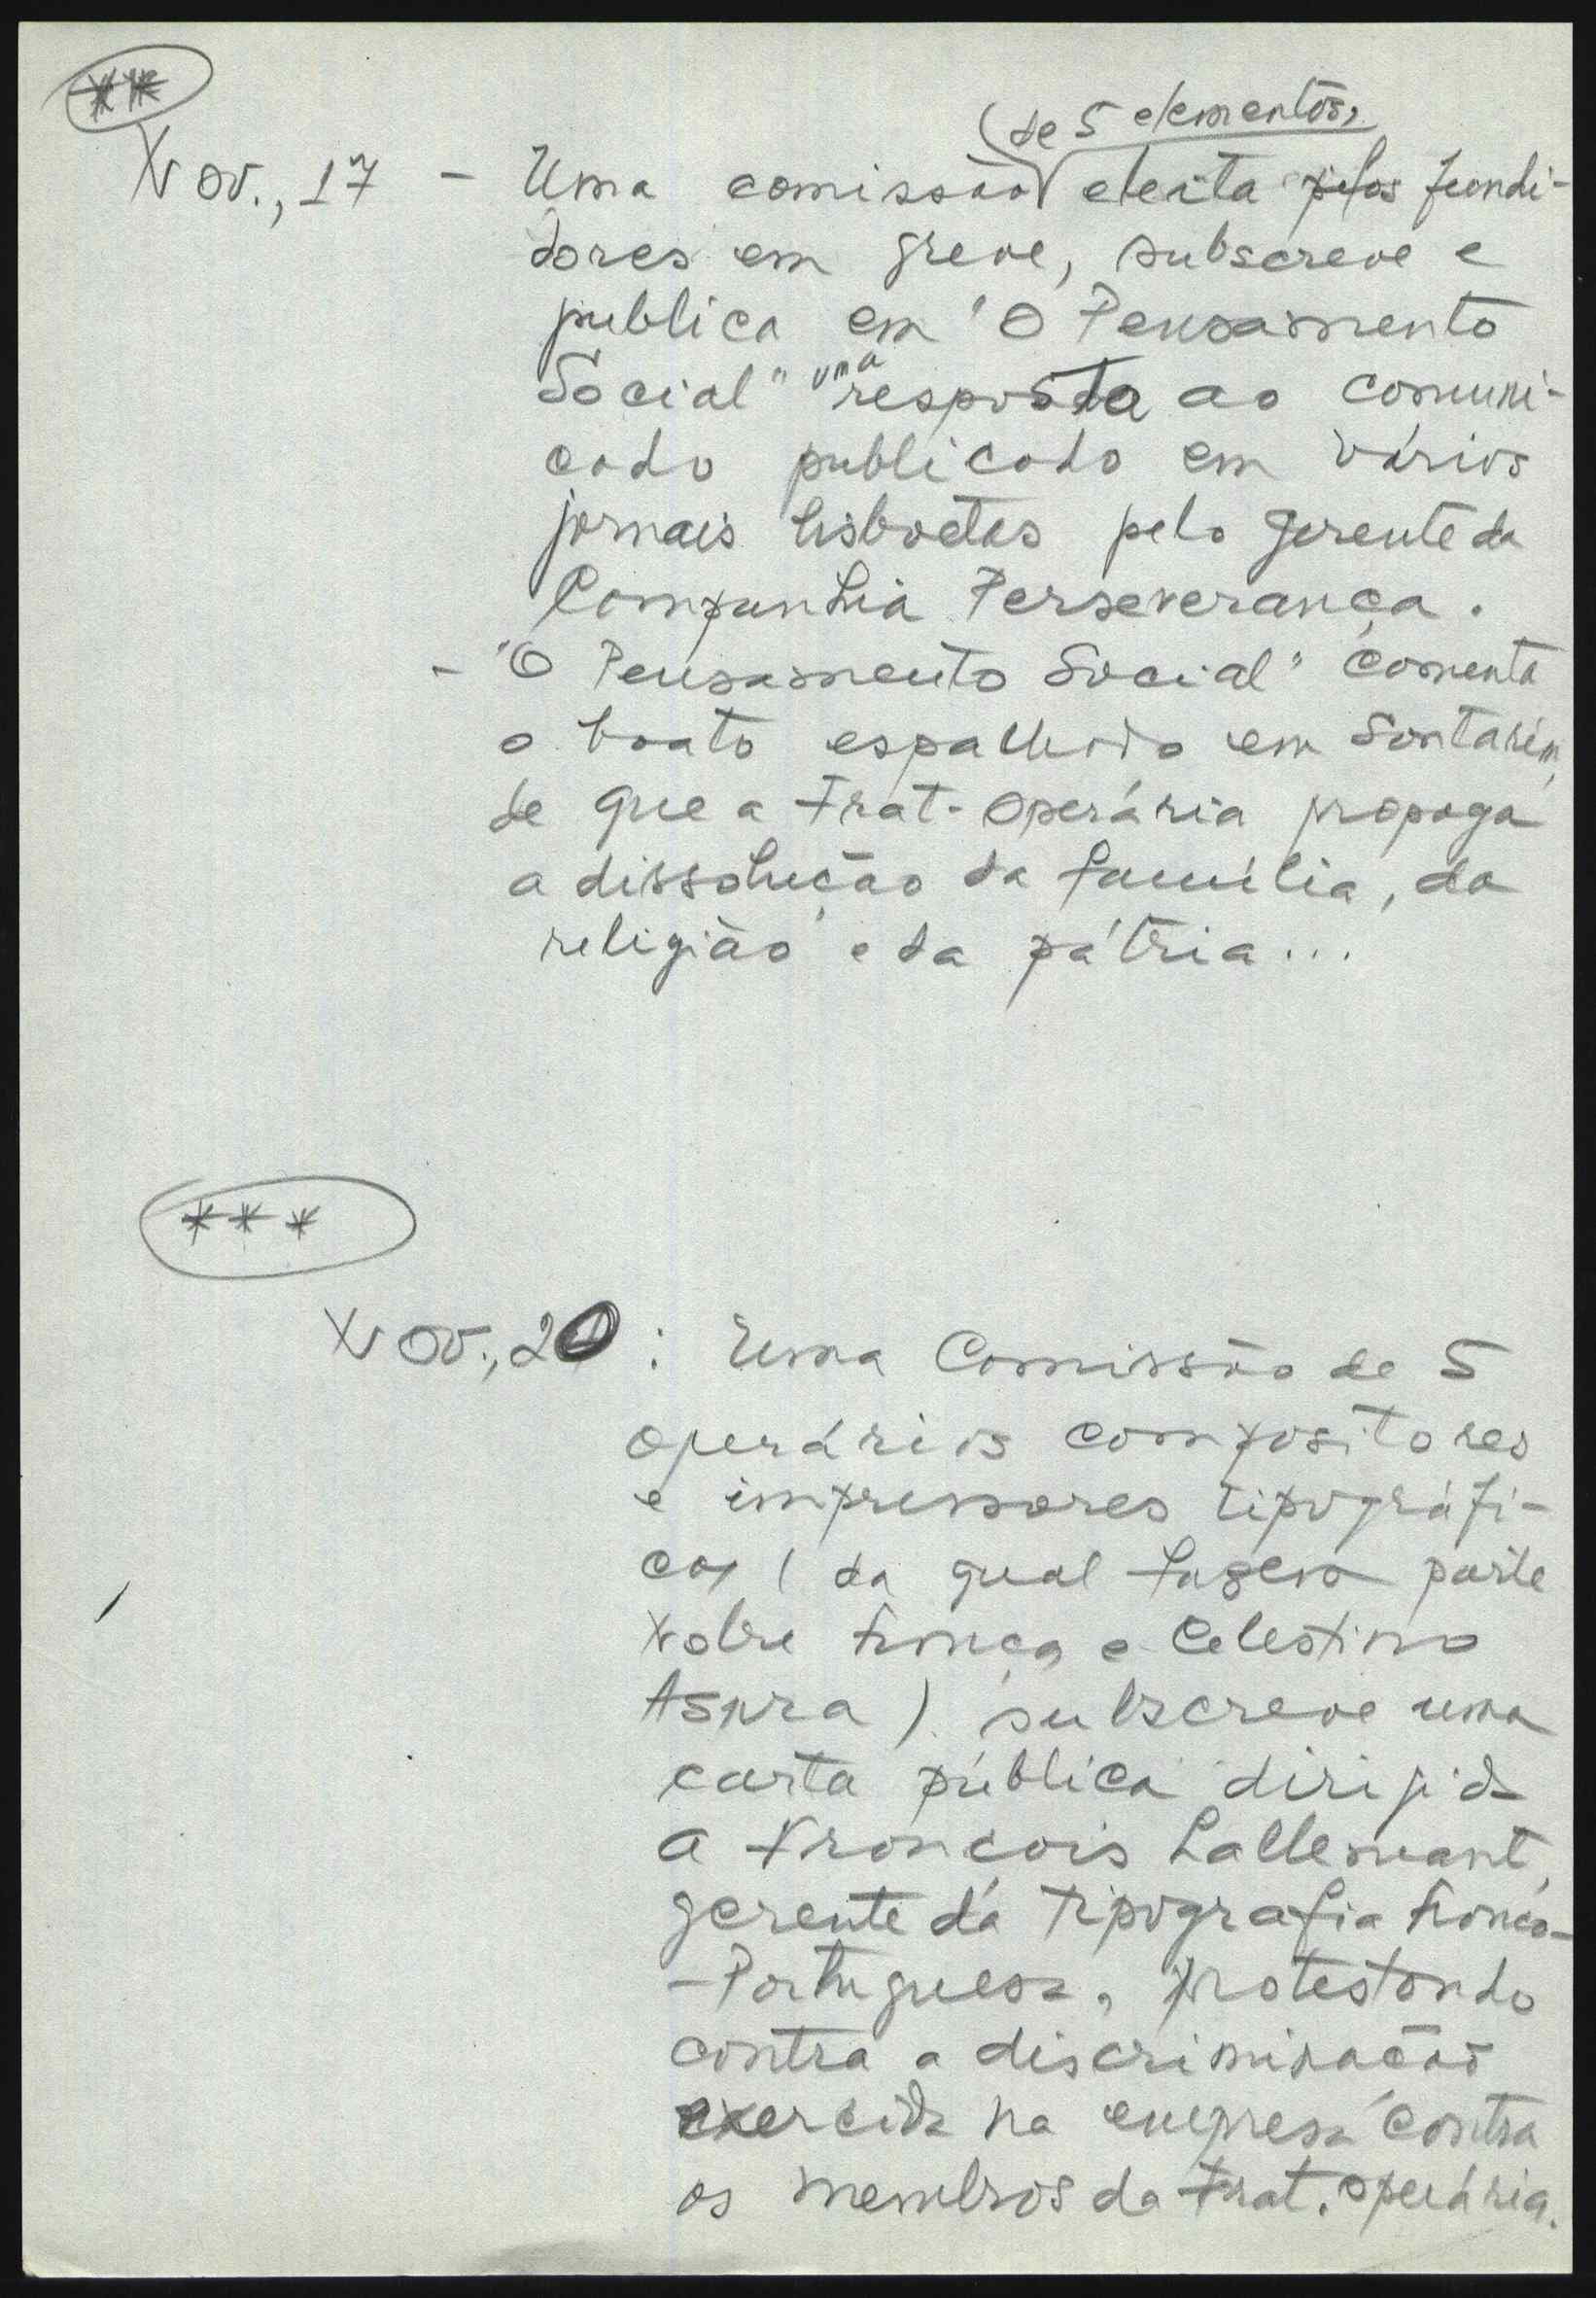 **
de 5 elementos,
Nov., 17 - Uma comissão eleita pelos fundi-
dores em greve, subscreve e
publica em "O Pensamento
Social" uma resposta ao comuni-
cado publicado em vários
jornais lisboetas pelo gerente da
Companhia Perseverança.
- "O Pensamento Social" comenta
o boato espalhado em Santarém,
de que a Frat. Operária propaga
a dissolução da família, da
religião e da pátria...
***
Nov., 20 : Uma Comissão de 5
operários compositores
e impressores tipográfi-
cos (da qual fazem parte
Nobre França e Celestino
Aspra) subscreve uma
carta pública dirigida
a François Lallemant,
gerente da Tipografia Franco-
-Portuguesa, protestando
contra a discriminação
exercida na empresa contra
os membros da Frat. Operária.